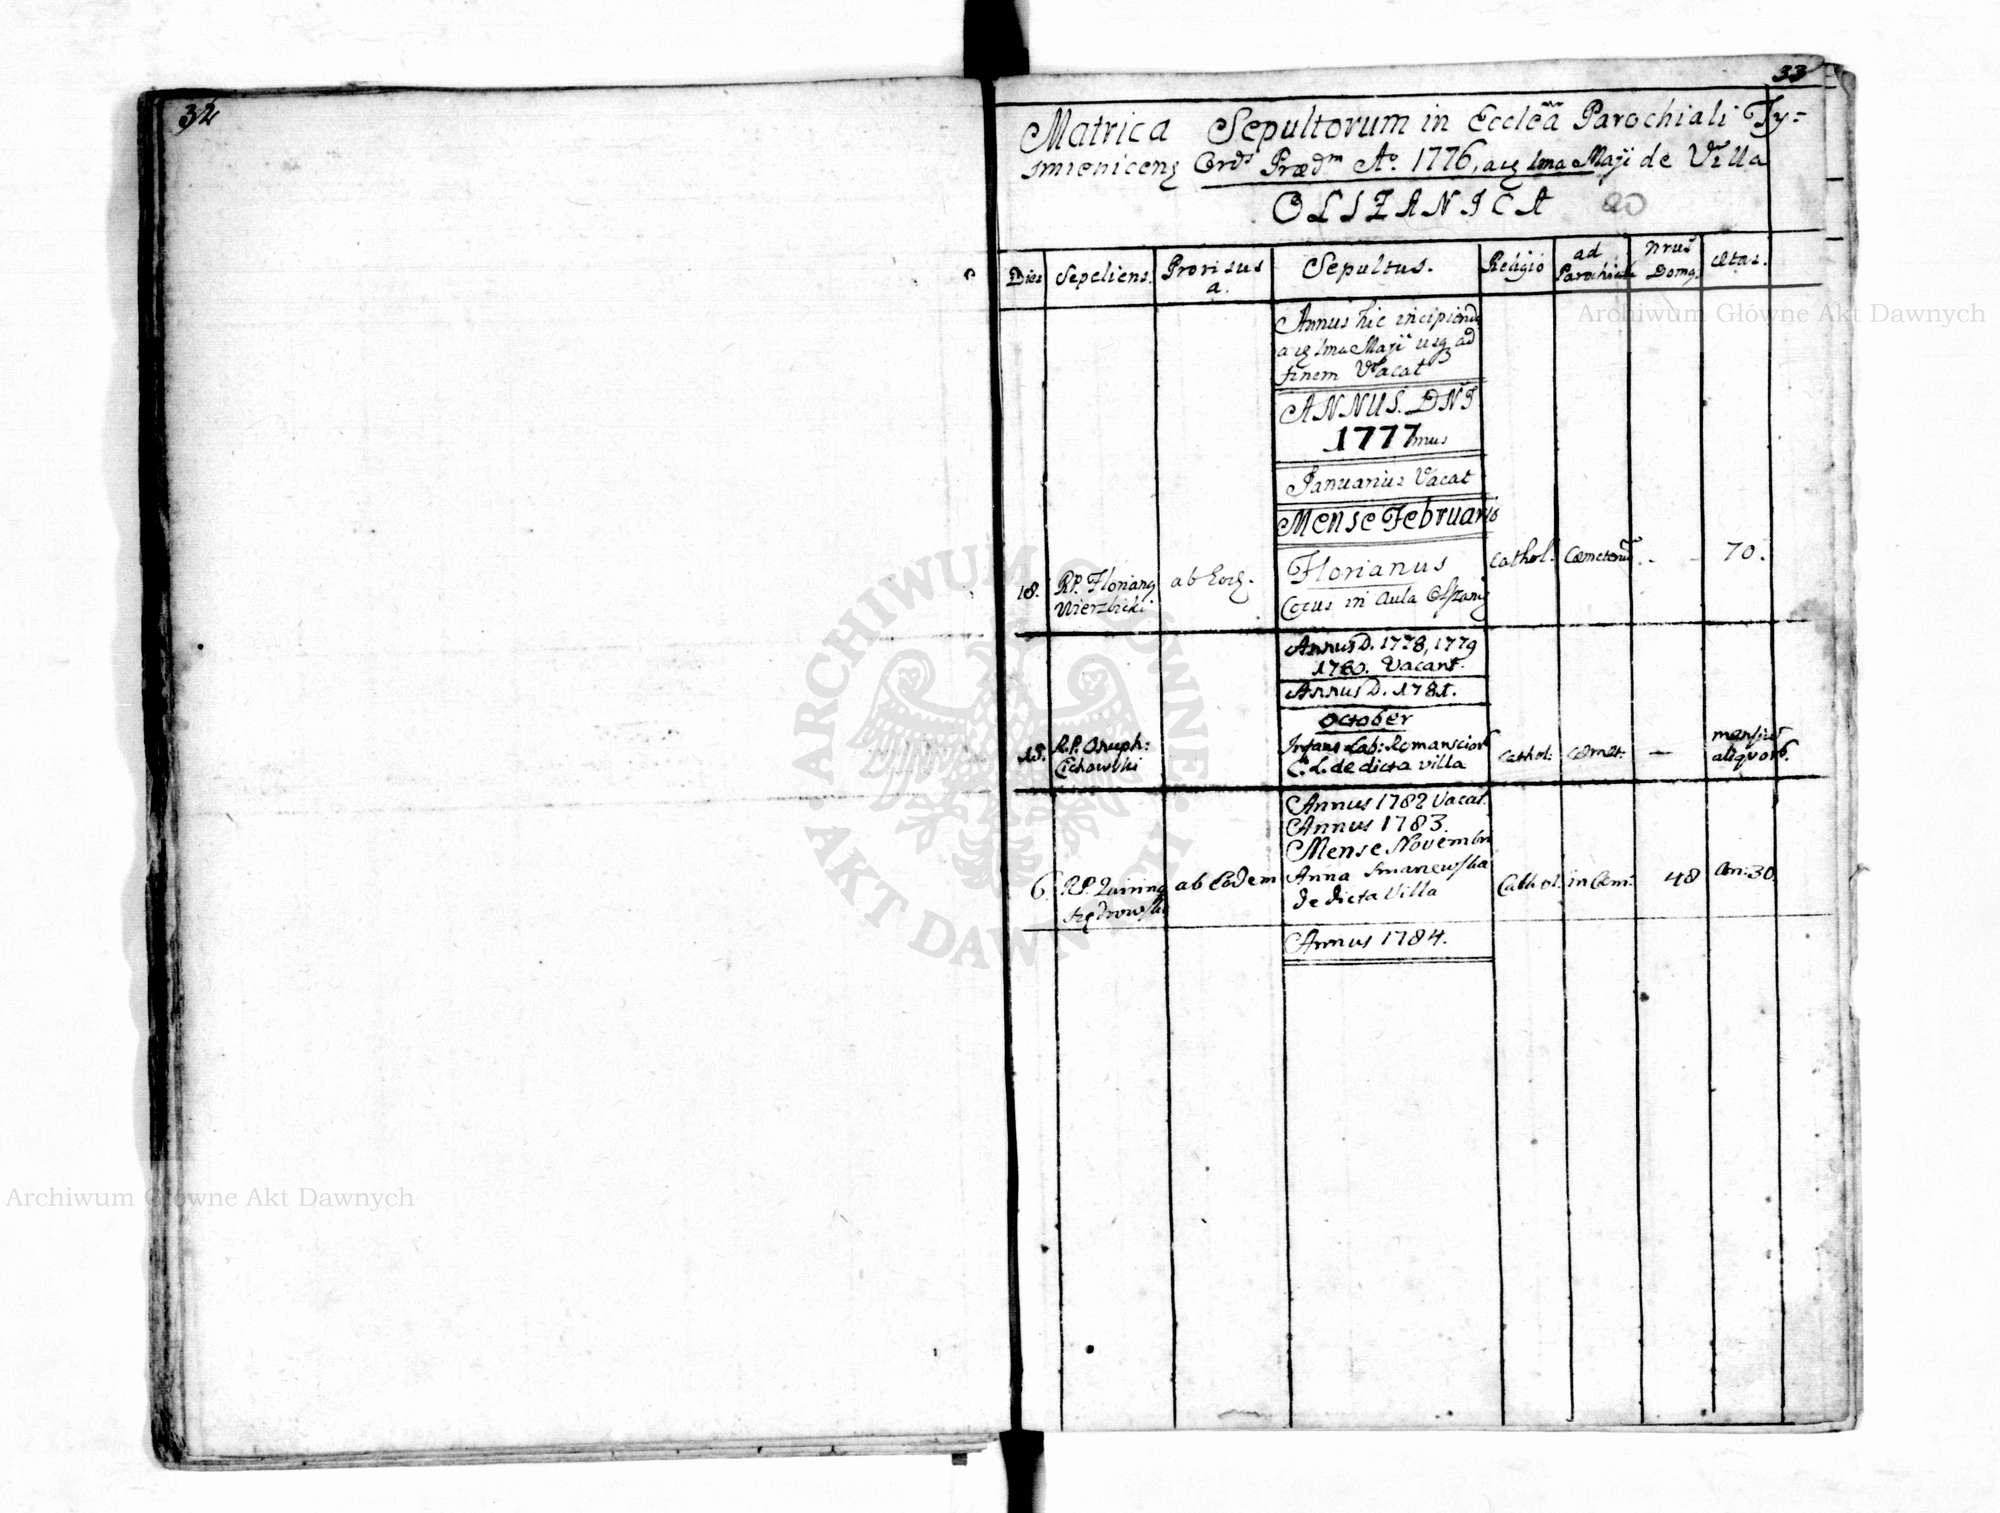 32
33
Matrica Sepultorum in Eccleã Parochiali Ty=
smieniceng Ordis Prædm Ao. 1776, a 1ma Maji de Villa
OLSZANICA 20
Dies Sepeliens. Provisus a. Sepultus. Religio ad Parochiale Nrus Domq. Ætas.
Annus hic incipiendo
a 1ma Maji usq ad
finem Vacat
ANNUS. DNI
1777mus
Januarius Vacat
Mense Februario
18. RP. Florianq Wierzbicki ab Eod. Florianus Cathol. Cæmeteriũ. - - 70.
Cocus in Aula Olszanic
Annus D. 1778, 1779
1780. Vacant.
Annus D. 1781.
October
15. R.P. Onuph: Cichowski Infans Lab: Romanscior Cathol: Cæmet: — mensiũ aliquorũ.
C. L. de dicta villa
Annus 1782 Vacat.
Annus 1783.
Mense Novembri
6. R.P. Quirinq ab Eodem Anna Smanewska Cathol: in Cæm: 48 An: 30
de dicta Villa
Annus 1784.
Archiwum Główne Akt Dawnych
Archiwum Główne Akt Dawnych
ARCHIWUM GŁÓWNE AKT DAWNYCH